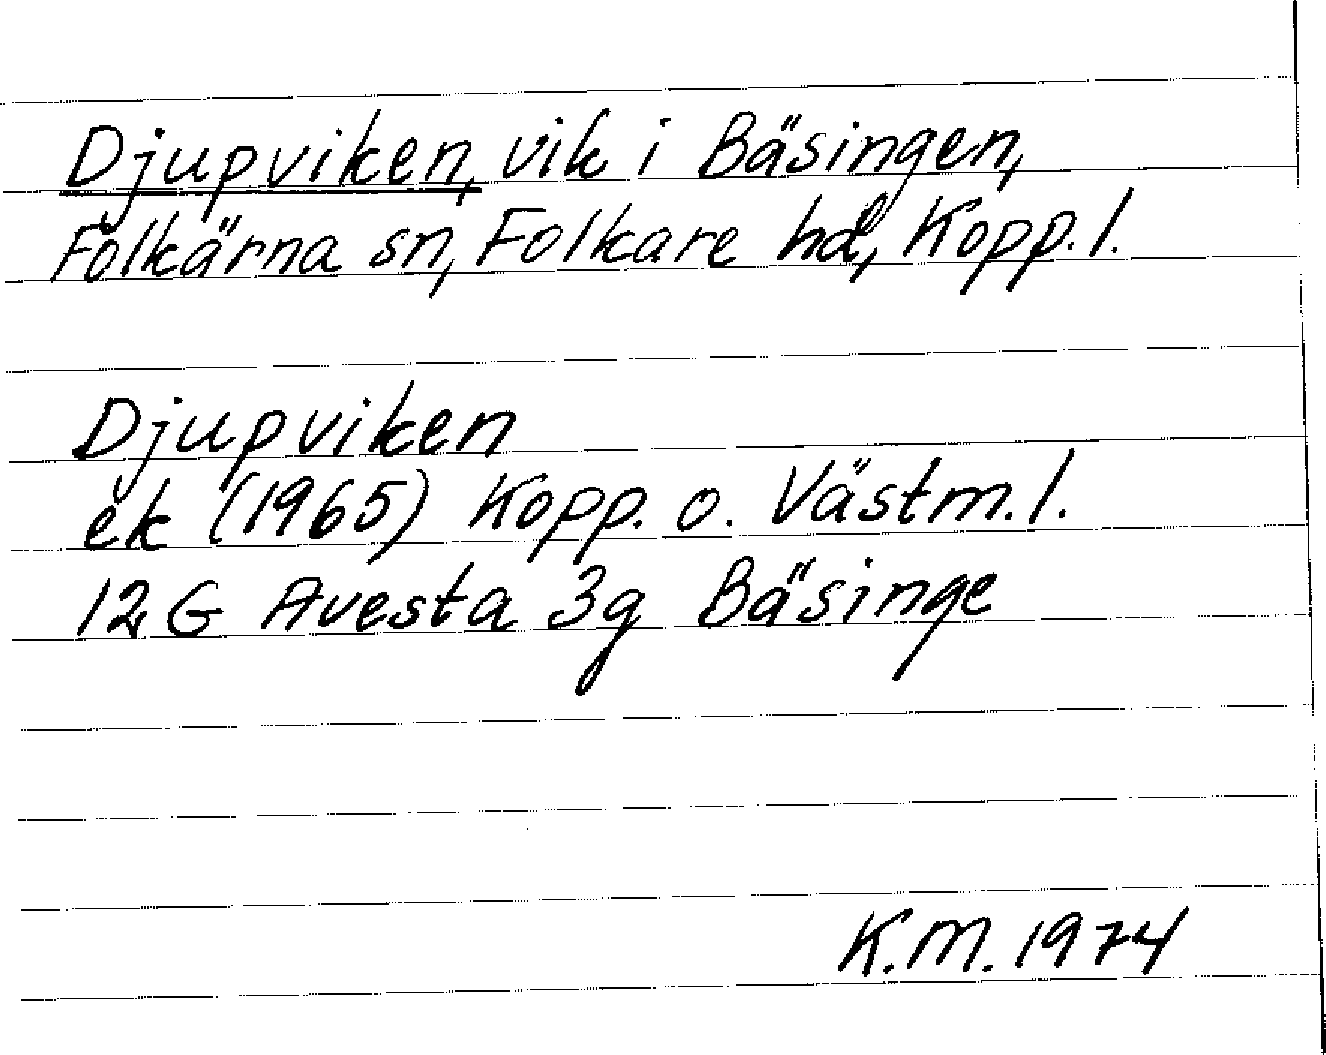 Djupviken, vik i Bäsingen,
Folkärna sn, Folkare hd, Kopp. l.
Djupviken
ek (1965) Kopp. o. Västm. l.
12 G Avesta 3g Bäsinge
K.M. 1974